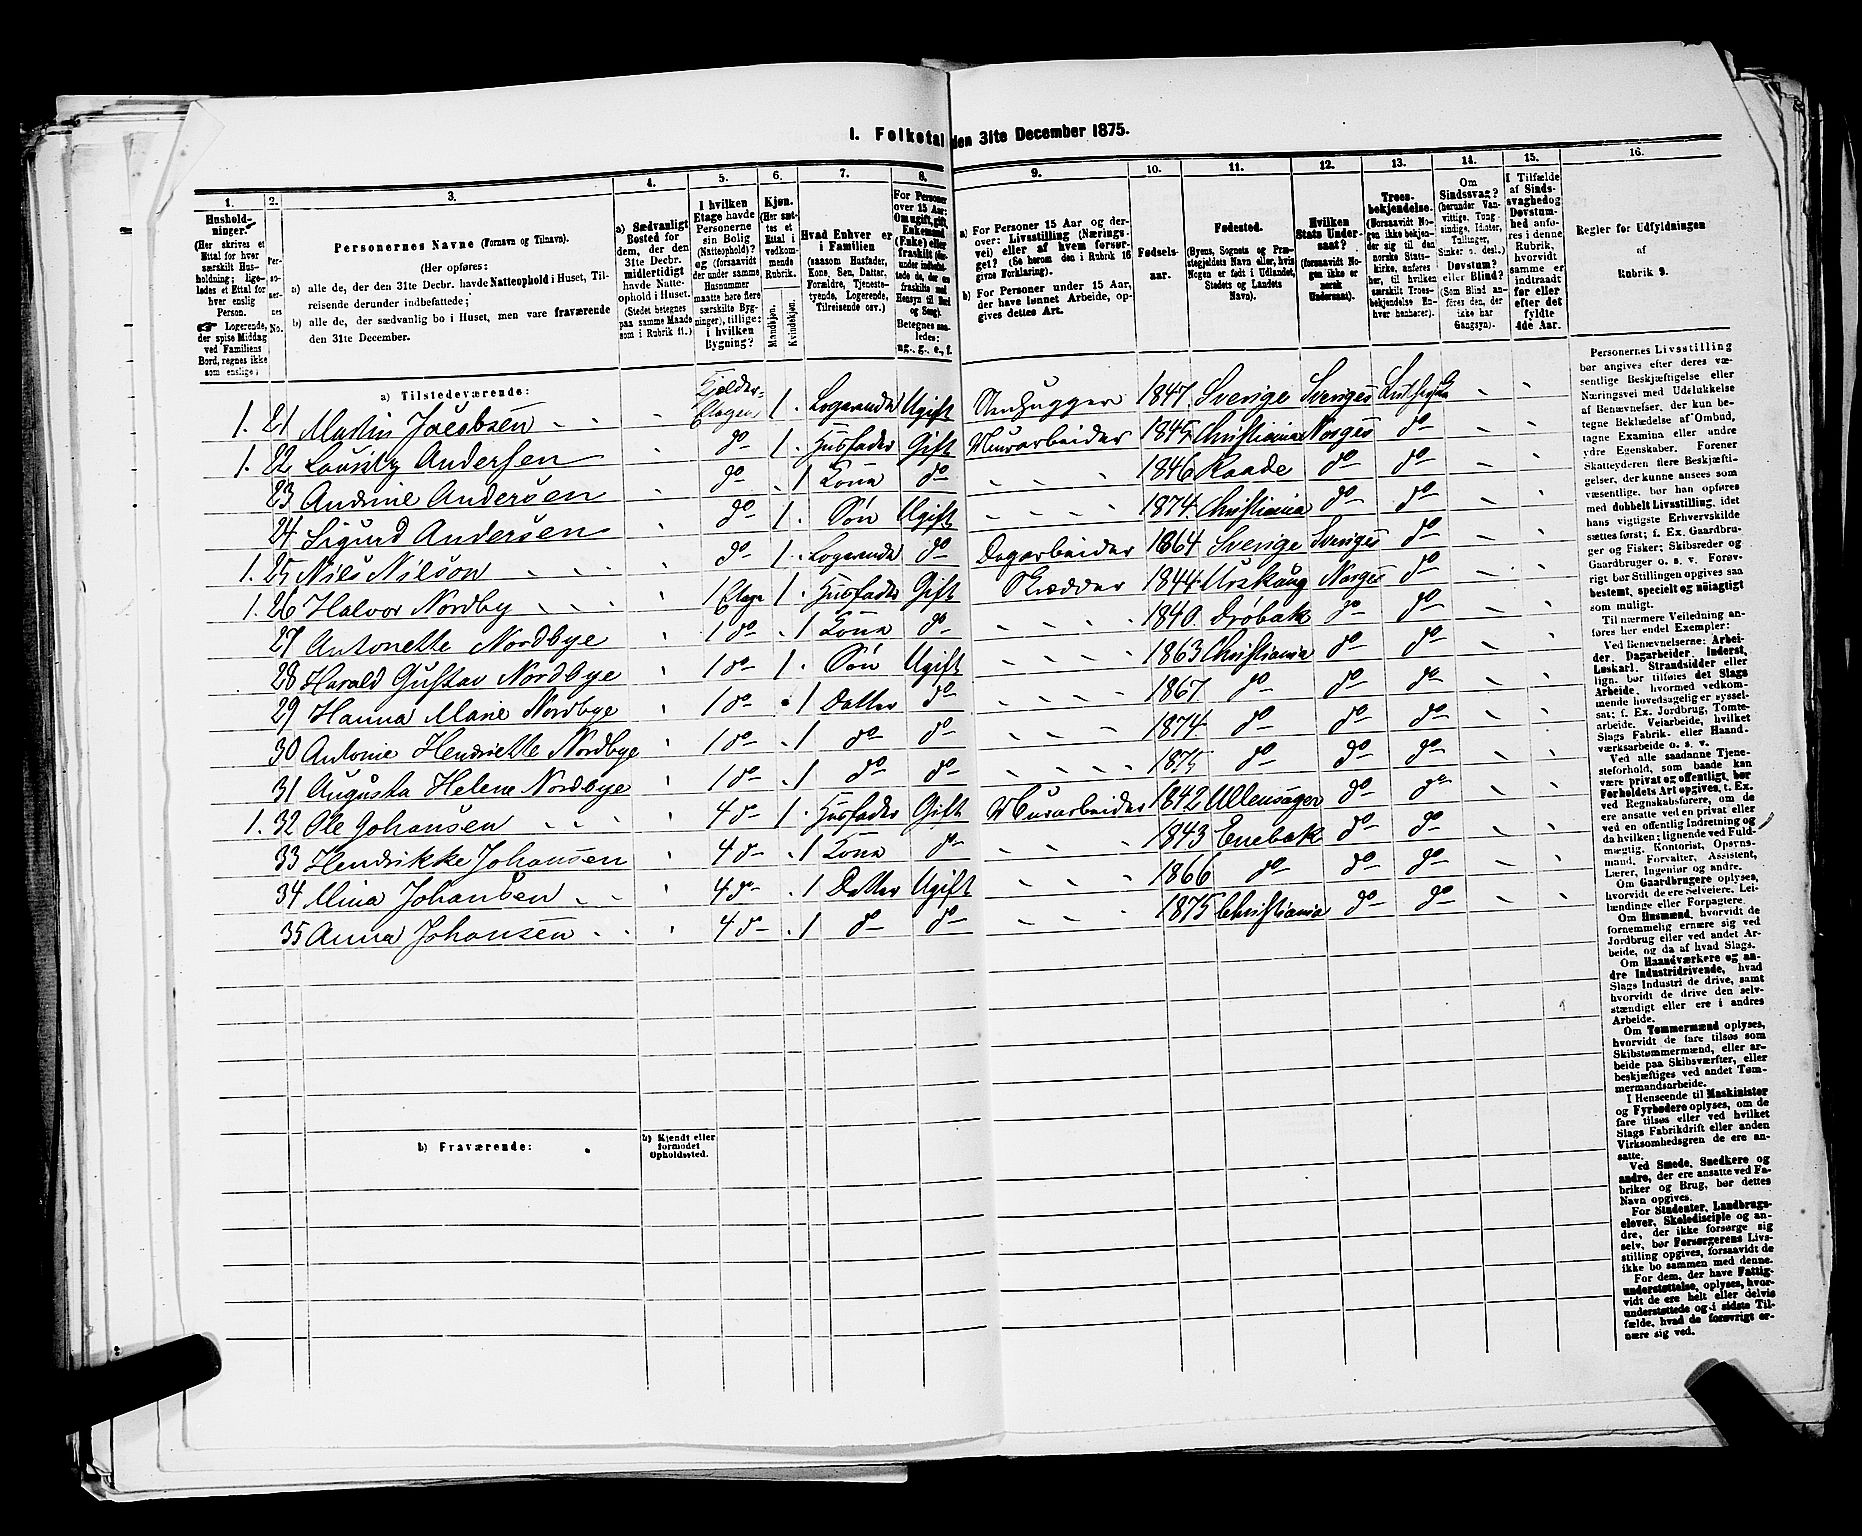 1. Folketal den 31te December 1875.
1. 2. 3. 4. 5. 6. 7. 8. 9. 10. 11. 12. 13. 14. 15. 16.
Hushold-
ninger.
(Her skrives et
Ettal for hver
særskilt Hus-
holdning; lige-
ledes et Ettal for
hver enslig
Person.
☞ Logerende,
der spise Middag
ved Familiens
Bord, regnes ikke
som enslige.)
Per-
so-
ner-
nes
No.
Personernes Navne (Fornavn og Tilnavn).
(Her opføres:
a) alle de, der den 31te Decbr. havde Natteophold i Huset, Til-
reisende derunder indbefattede;
b) alle de, der sædvanlig bo i Huset, men vare fraværende
den 31te December.
a) Sædvanligt
Bosted for
dem, der den
31te Decbr.
midlertidigt
havde Natte-
ophold i Huset.
(Stedet betegnes
paa samme Maade
som i Rubrik 11.)
I hvilken
Etage havde
Personerne
sin Bolig
(Natteophold)?
og (forsaavidt
der under samme
Husnummer
maatte høre flere
særskilte Byg-
ninger), tillige:
i hvilken
Bygning?
Kjøn.
(Her sæt-
tes et
Ettal i
vedkom-
mende
Rubrik.
Mandkjøn.
Kvindekjøn.
Hvad Enhver er
i Familien
(saasom Husfader,
Kone, Søn, Datter,
Forældre, Tjeneste-
tyende, Logerende,
Tilreisende osv.)
For Personer
over 15 Aar:
Om ugift, gift,
Enkemand
(Enke) eller
fraskilt
Betegnes saa-
ledes:
ug., g., e., f.
a) For Personer 15 Aar og der-
over: Livsstilling (Nærings-
vei) eller af hvem forsør-
get? (Se herom den i Rubrik 16
givne Forklaring).
b) For Personer under 15 Aar,
der have lønnet Arbeide, op-
gives dettes Art.
Fødsels-
aar.
Fødested.
(Byens, Sognets og Præ-
stegjeldets Navn eller, hvis
Nogen er født i Udlandet,
Stedets og Landets
Navn).
Hvilken
Stats Under-
saat?
(forsaavidt No-
gen ikke er
norsk
Undersaat).
Troes-
bekjendelse.
(Forsaavidt No-
gen ikke bekjen-
der sig til den
norske Stats-
kirke, anføres
her, til hvilken
særskilt Troes-
bekjendelse En-
hver henhører).
Om
Sindssvag?
(herunder Van-
vittige, Tung-
sindige, Idioter,
Tullinger,
Sinker o. desl.)
Døvstum?
eller Blind?
(Som Blind an-
føres den, der
ikke har
Gangsyn).
I Tilfælde
af Sinds-
svaghed og
Døvstum-
hed anfø-
res i denne
Rubrik,
hvorvidt
samme er
indtraadt
før eller
efter det
fyldte
4de Aar.
Regler for Udfyldningen
af
Rubrik 9.
a) Tilstedeværende:
1. 21 Martin Jacobsen Kjelder-Etagen 1. Logerende Ugift Stenhugger 1847. Sverige Sveriges Luthersk
1. 22 Lauritz Andersen do 1. Husfader Gift Murarbeider 1845 Christiania Norges do
23 Andrine Andersen do . 1 Kone do 1846 Raade do do
24 Sigurd Andersen do 1. Søn Ugift 1874. Christiania do do
1. 25 Nils Nilson do 1. Logerende do Dagarbeider 1864 Sverige Sveriges do
1. 26 Halvor Nordby 1 Etage 1. Husfader Gift Skrædder 1844. Urskoug Norges do
27 Antonette Nordbye 1 do . 1 Kone do 1840. Drøbak do do
28 Harald Gustav Nordbye 1 do 1. Søn Ugift 1863 Christiania do do
29 Hanna Marie Nordbye 1 do . 1 Datter do 1867 do do do
30 Antonie Henriette Nordbye 1 do . 1 do do 1874. do do do
31 Augusta Helene Nordbye 1 do . 1 do do 1875 do do do
1. 32 Ole Johansen 4 do 1. Husfader Gift Murarbeider 1842 Ullensager do do
33 Hendrikke Johansen 4 do . 1 Kone do 1843 Enebak do do
34 Mina Johansen 4 do . 1 Datter Ugift 1866 do do do
35 Anna Johansen 4 do . 1 do do 1875 Christiania do do
b) Fraværende:
b) Kjendt eller
formodet
Opholdssted.
Personernes Livsstilling
bør angives efter deres væ-
sentlige Beskjæftigelse eller
Næringsvei med Udelukkelse
af Benævnelser, der kun be-
tegne Beklædelse af Ombud,
tagne Examina eller andre
ydre Egenskaber. Forener
Skatteyderen flere Beskjæfti-
gelser, der kunne ansees som
væsentlige, bør han opføres
med dobbelt Livsstilling, idet
hans vigtigste Erhvervskilde
sættes først; f. Ex. Gaardbru-
ger og Fisker; Skibsreder og
Gaardbruger o. s. v. Forøv-
rigt bør Stillingen opgives saa
bestemt, specielt og nøiagtigt
som muligt.
Til nærmere Veiledning an-
føres her endel Exempler:
Ved Benævnelserne: Arbei-
der, Dagarbeider, Inderst,
Løskarl, Strandsidder eller
lign. bør tilføies det Slags
Arbeide, hvormed vedkom-
mende hovedsagelig er syssel-
sat; f. Ex. Jordbrug, Tomte-
arbeide, Veiarbeide, hvilket
Slags Fabrik- eller Haand-
værksarbeide o. s. v.
Ved alle saadanne Tjene-
steforhold, som baade kan
være privat og offentligt, bør
Forholdets Art opgives, t. Ex.
ved Regnskabsførere, om de
ere ansatte ved en privat eller
ved en offentlig Indretning og
da hvilken; lignende ved Fuld-
mægtig, Kontorist, Opsyns-
mand, Forvalter, Assistent,
Lærer, Ingeniør og andre.
Om Gaardbrugere oplyses,
hvorvidt de ere Selveiere, Lei-
lændinge eller Forpagtere.
Om Husmænd, hvorvidt de
fornemmelig ernære sig ved
Jordbrug eller ved andet Ar-
beide, og da af hvad Slags.
Om Haandværkere og an-
dre Industridrivende, hvad
Slags Industri de drive, samt
hvorvidt de drive den selv-
stændigt eller ere i andres
Arbeide.
Om Tømmermænd oplyses,
hvorvidt de fare tilsøs som
Skibstømmermænd, eller ar-
beide paa Skibsværfter, eller
beskjæftiges ved andet Tøm-
mermandsarbeide.
I Henseende til Maskinister
og Fyrbødere oplyses, om de
fare tilsøs eller ved hvilket
Slags Fabrikdrift eller anden
Virksomhedsgren de ere an-
satte.
Ved Smede, Snedkere og
andre, der ere ansatte ved Fa-
briker og Brug, bør dettes
Navn opgives.
For Studenter, Landbrugs-
elever, Skoledisciple og an-
dre, der ikke forsørge sig
selv, bør Forsørgerens Livs-
stilling opgives, forsaavidt de
ikke bo sammen med denne.
For dem, der have Fattig-
understøttelse, oplyses, hvor-
vidt de ere helt eller delvis
understøttede og i sidste Til-
fælde, hvad de forøvrigt er-
nære sig ved.